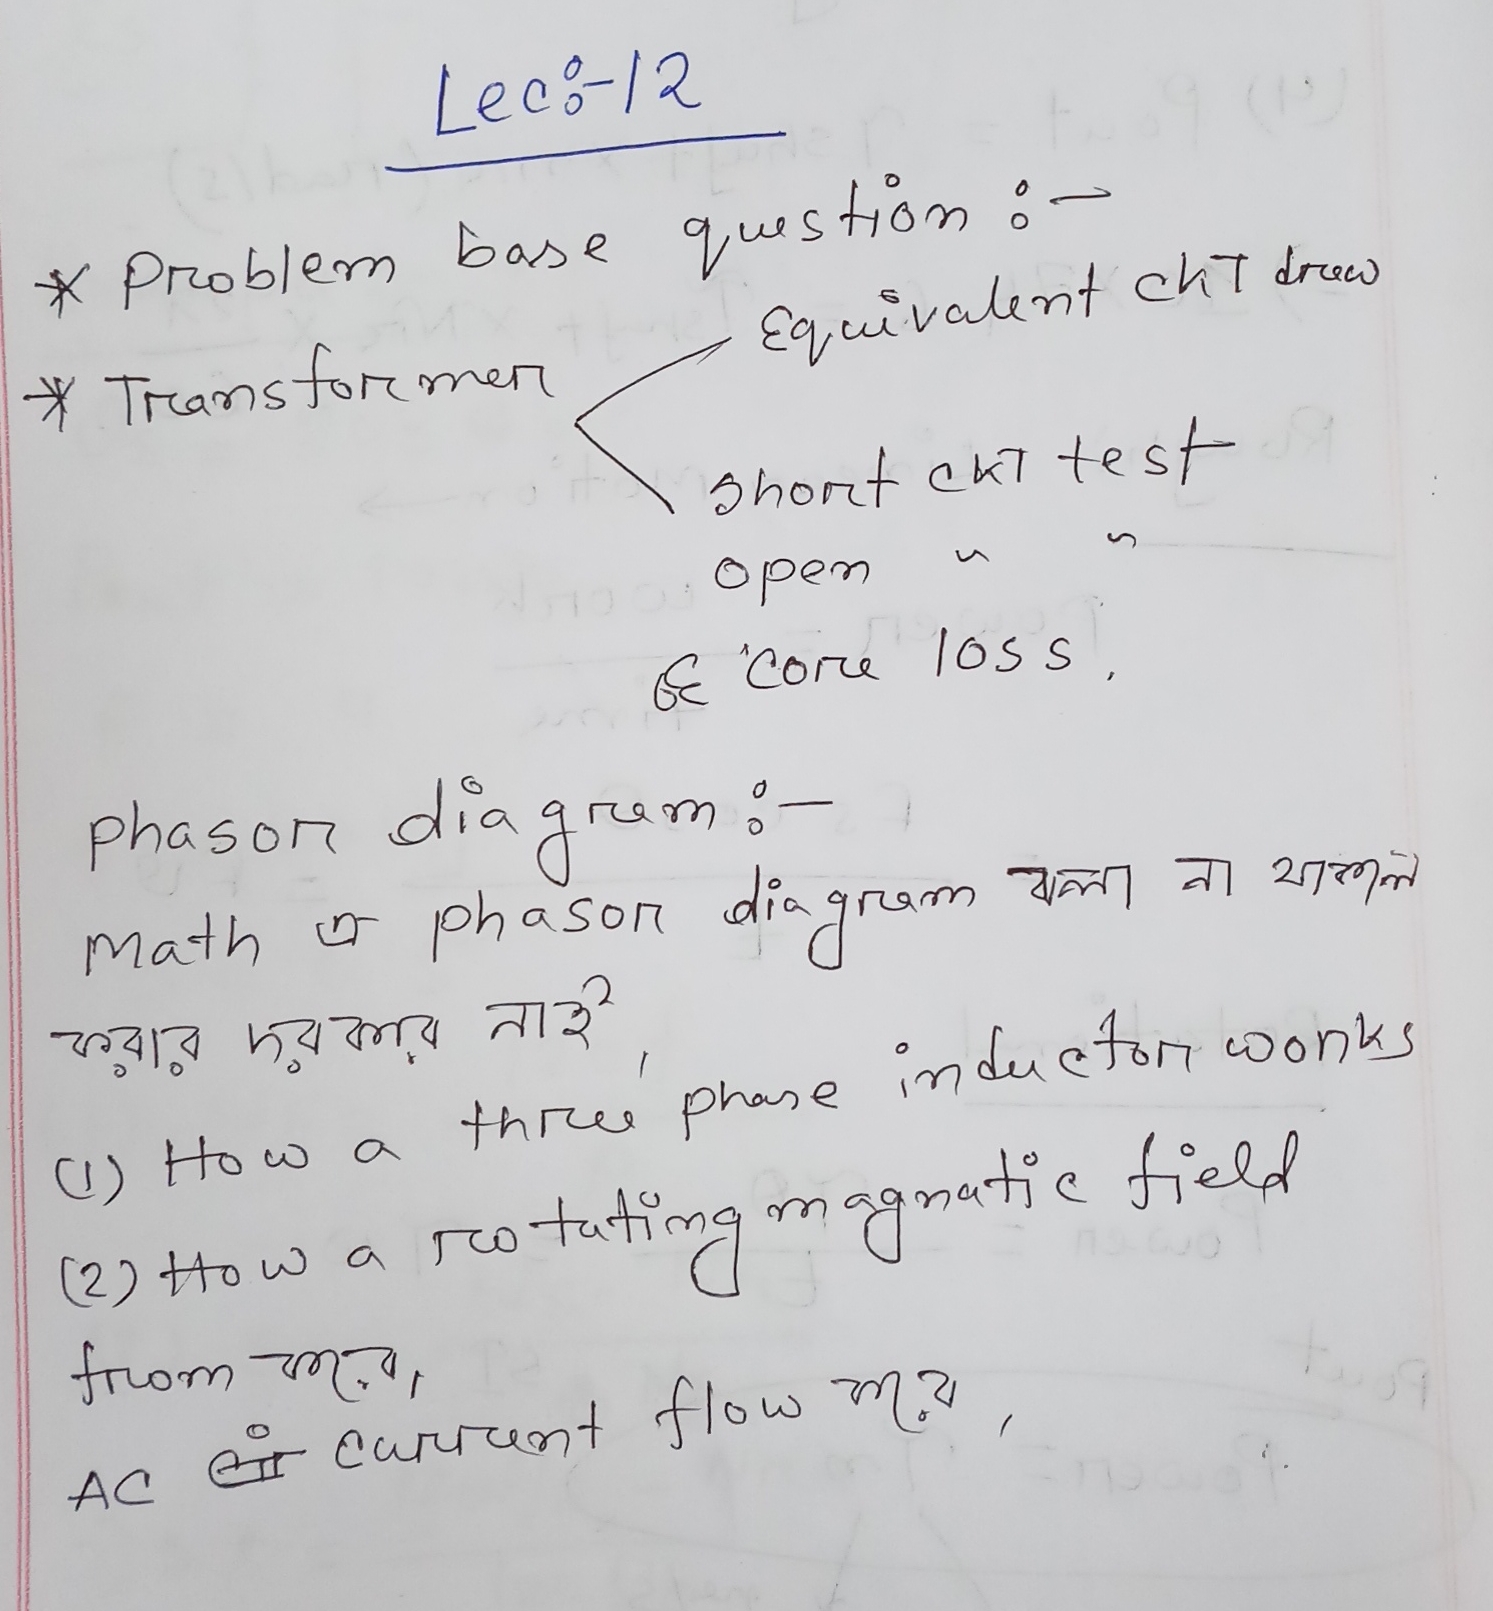 Lec:-12
* Problem base question :-
* Transformer
Equivalent ckT draw
short ckT test
open " "
core loss.
phasor diagram :-
Math এ phasor diagram বলা না থাকলে
করার দরকার নাই,
(1) How a three phase inductor works
(2) How a rotating magnatic field
from করে,
AC current flow করে,